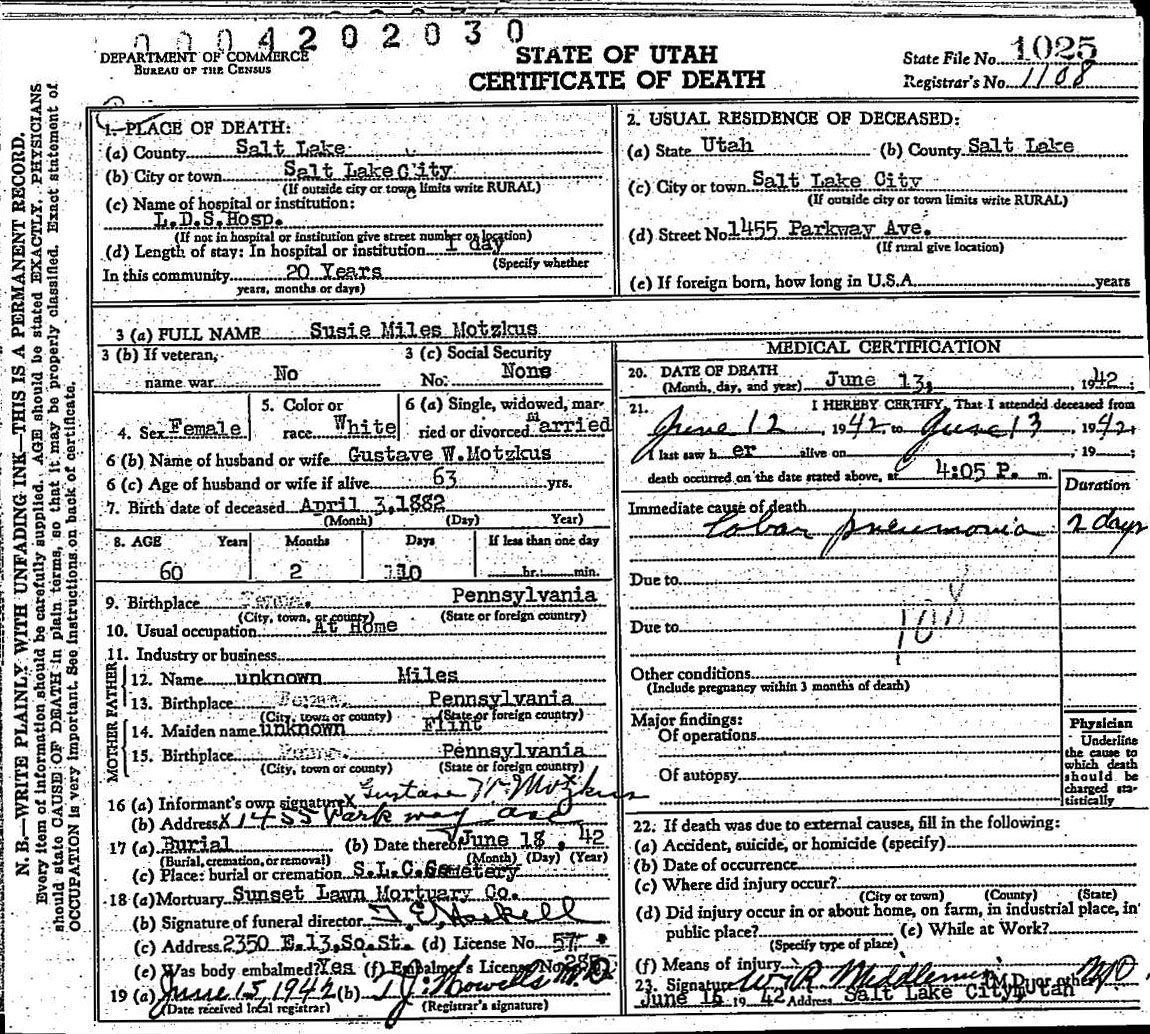 0004202030
DEPARTMENT OF COMMERCE
BUREAU OF THE CENSUS
STATE OF UTAH
CERTIFICATE OF DEATH
State File No. 1025
Registrar's No. 1108
N. B.—WRITE PLAINLY WITH UNFADING INK—THIS IS A PERMANENT RECORD.
Every item of information should be carefully supplied. AGE should be stated EXACTLY. PHYSICIANS
should state CAUSE OF DEATH in plain terms, so that it may be properly classified. Exact statement of
OCCUPATION is very important. See instructions on back of certificate.
1. PLACE OF DEATH:
(a) County Salt Lake
(b) City or town Salt Lake City
(If outside city or town limits write RURAL)
(c) Name of hospital or institution:
L.D.S.Hosp.
(If not in hospital or institution give street number or location)
(d) Length of stay: In hospital or institution 1 day
(Specify whether
In this community 20 Years
years, months or days)
2. USUAL RESIDENCE OF DECEASED:
(a) State Utah (b) County Salt Lake
(c) City or town Salt Lake City
(If outside city or town limits write RURAL)
(d) Street No. 1455 Parkway Ave.
(If rural give location)
(e) If foreign born, how long in U.S.A. years
3 (a) FULL NAME Susie Miles Motzkus
3 (b) If veteran, name war No
3 (c) Social Security No. None
4. Sex Female
5. Color or race White
6 (a) Single, widowed, married or divorced Married
6 (b) Name of husband or wife Gustave W.Motzkus
6 (c) Age of husband or wife if alive 63 yrs.
7. Birth date of deceased April 3,1882
(Month) (Day) Year)
8. AGE Years Months Days If less than one day
60 2 10 hr. min.
9. Birthplace Pennsylvania
(City, town, or county) (State or foreign country)
10. Usual occupation At Home
11. Industry or business
FATHER
12. Name unknown Miles
13. Birthplace Pennsylvania
(City, town or county) (State or foreign country)
MOTHER
14. Maiden name unknown Flint
15. Birthplace Pennsylvania
(City, town or county) (State or foreign country)
16 (a) Informant's own signature X Gustave W. Motzkus
(b) Address X 1455 Park way ave
17 (a) Burial (b) Date thereof June 18, 42
(Burial, cremation, or removal) (Month) (Day) (Year)
(c) Place: burial or cremation S.L.C.Cemetery
18 (a) Mortuary Sunset Lawn Mortuary Co.
(b) Signature of funeral director Haskell
(c) Address 2350 E.13.So.St. (d) License No. 57
(e) Was body embalmed? Yes (f) Embalmer's License No.
19 (a) June 15, 1942 (b) T J Howells M.D
(Date received local registrar) (Registrar's signature)
MEDICAL CERTIFICATION
20. DATE OF DEATH
(Month, day, and year) June 13, 1942
21. I HEREBY CERTIFY, That I attended deceased from
June 12, 1942 to June 13, 1942
I last saw her alive on , 19 ;
death occurred on the date stated above, at 4:05 P. m.
Duration
Immediate cause of death
Lobar pneumonia 2 days
Due to
Due to
108
Other conditions
(Include pregnancy within 3 months of death)
Major findings:
Of operations
Of autopsy
Physician
Underline
the cause to
which death
should be
charged sta-
tistically
22. If death was due to external causes, fill in the following:
(a) Accident, suicide, or homicide (specify)
(b) Date of occurrence
(c) Where did injury occur?
(City or town) (County) (State)
(d) Did injury occur in or about home, on farm, in industrial place, in
public place? (e) While at Work?
(Specify type of place)
(f) Means of injury
23. Signature W R Middlemiss (M.D. or other) MD
June 15 19 42 Address Salt Lake City, Utah